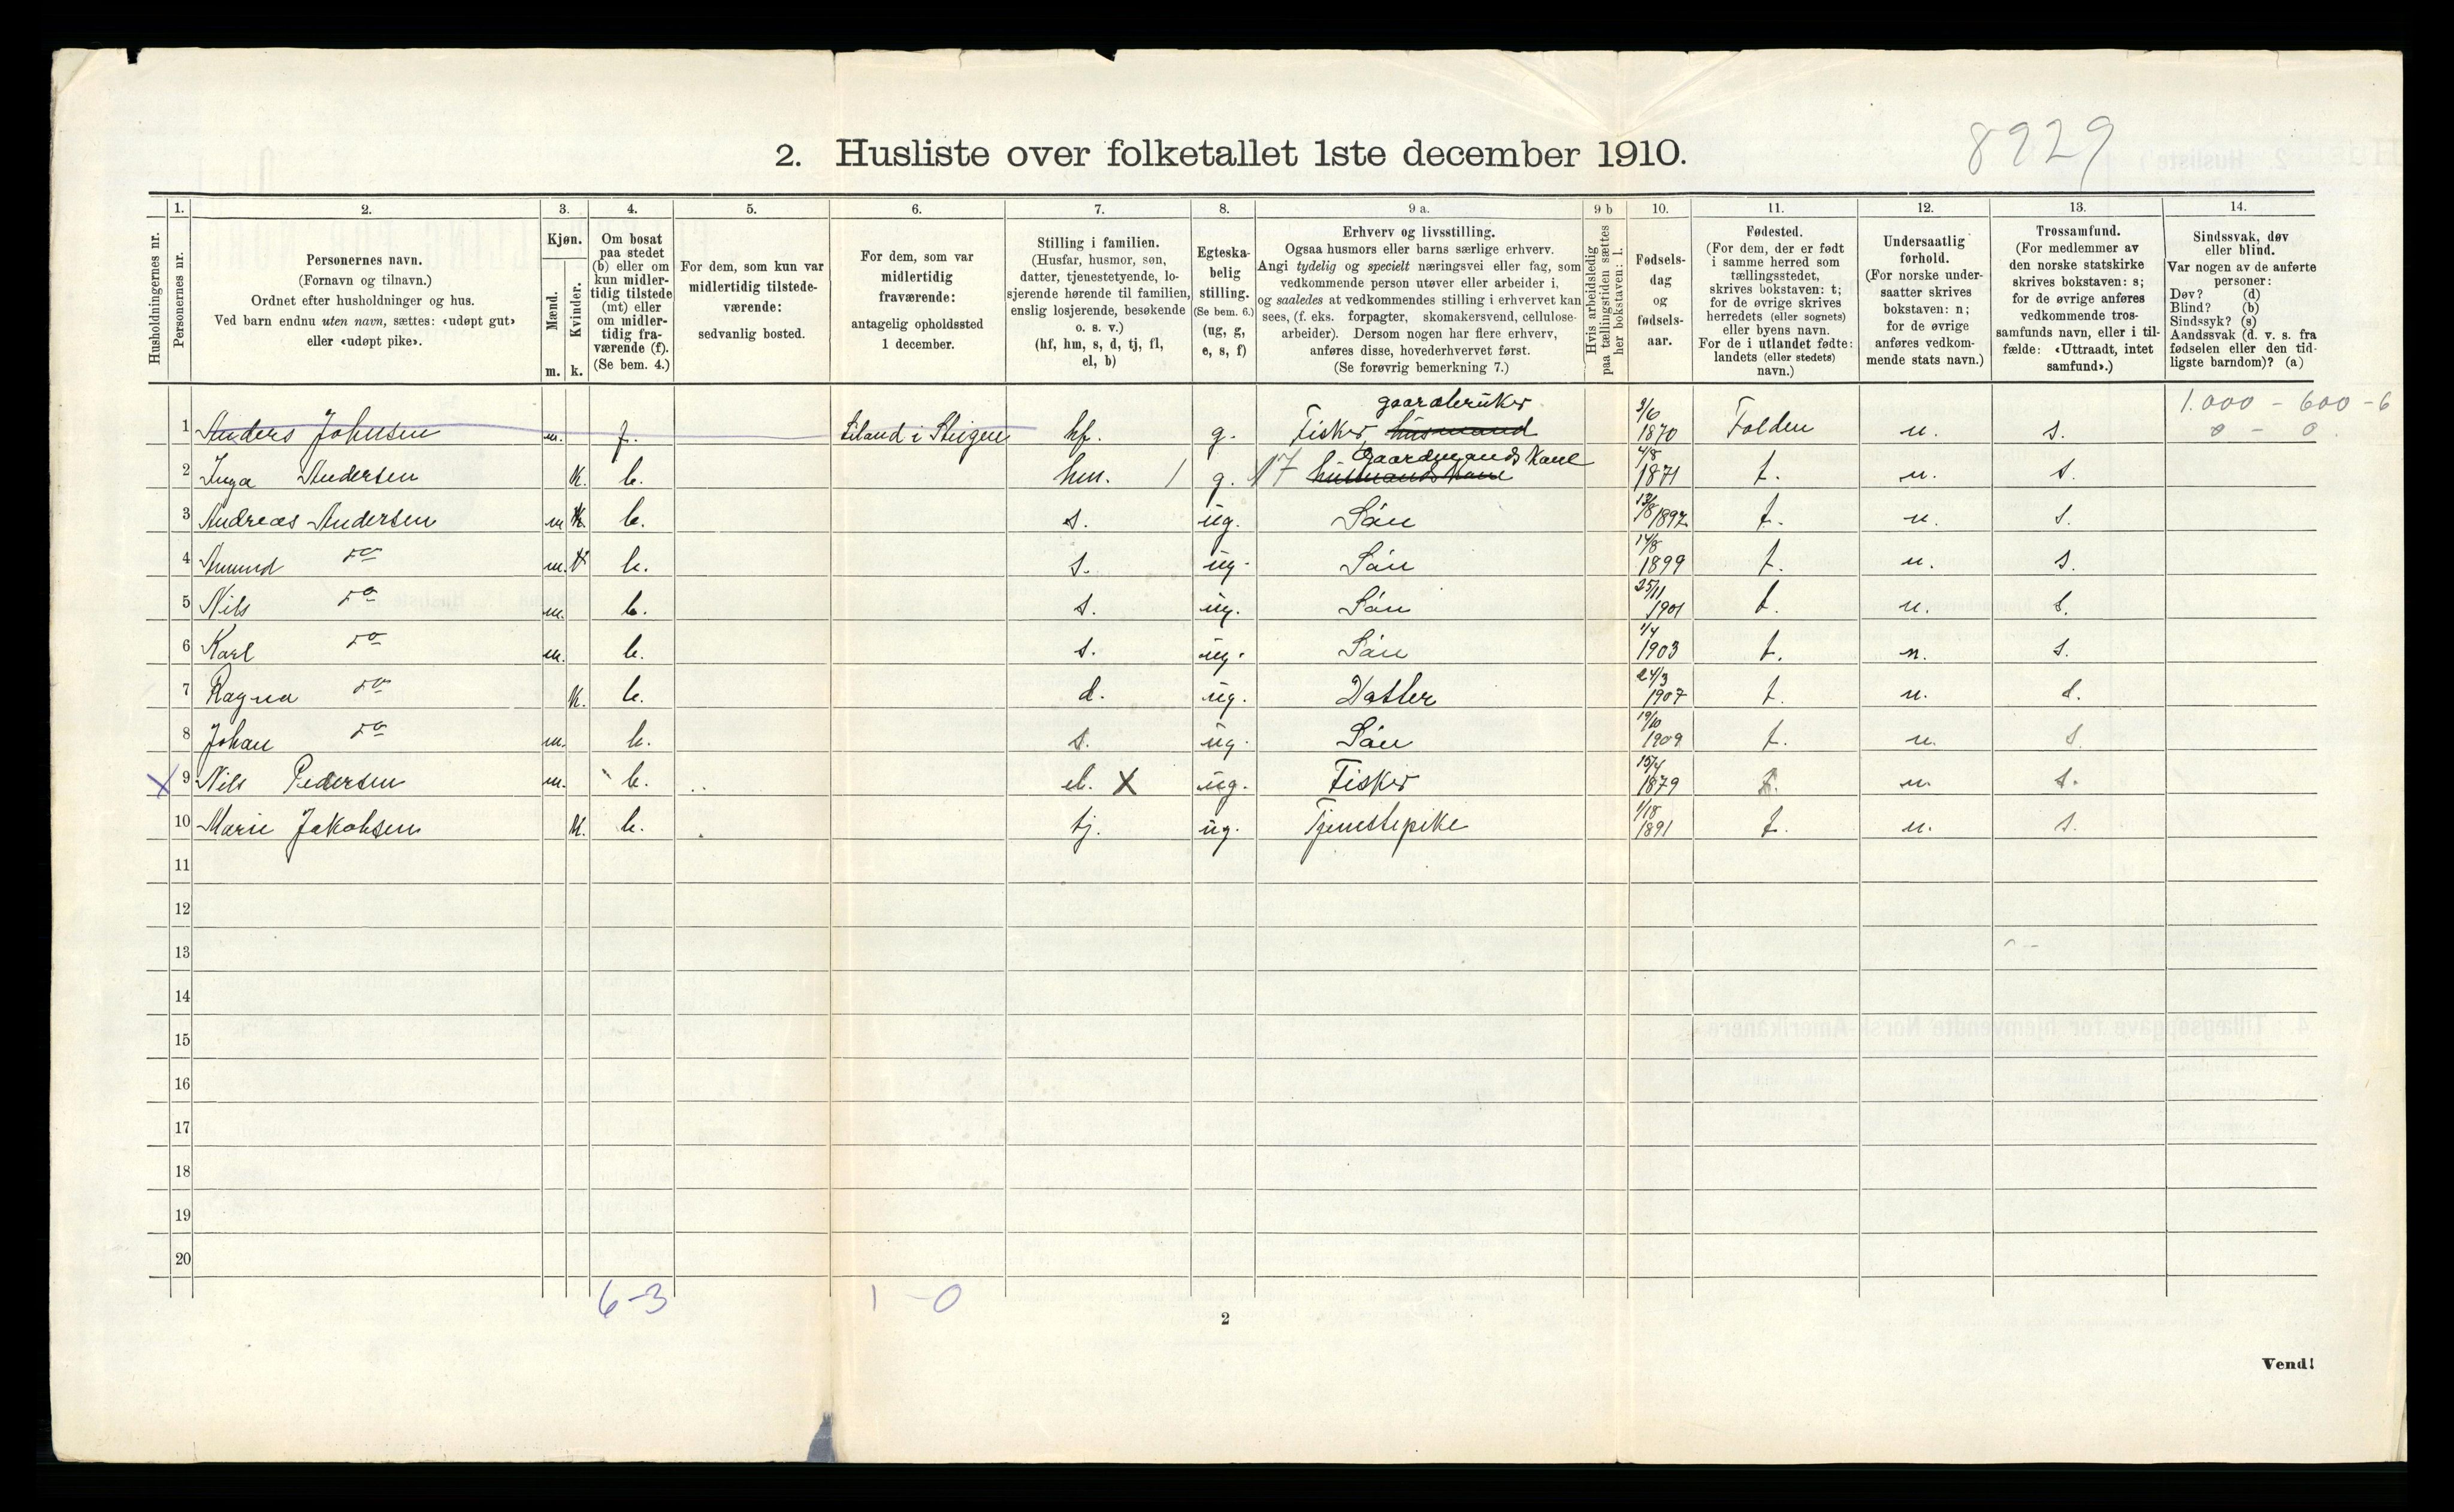 8929
2. Husliste over folketallet 1ste december 1910.
Husholdningernes nr.
1.
Personernes nr.
2.
Personernes navn.
(Fornavn og tilnavn.)
Ordnet efter husholdninger og hus.
Ved barn endnu uten navn, sættes: «udøpt gut»
eller «udøpt pike».
3.
Kjøn.
Mænd.
Kvinder.
m. k.
4.
Om bosat
paa stedet
(b) eller om
kun midler-
tidig tilstede
(mt) eller
om midler-
tidig fra-
værende (f).
(Se bem. 4.)
5.
For dem, som kun var
midlertidig tilstede-
værende:
sedvanlig bosted.
6.
For dem, som var
midlertidig
fraværende:
antagelig opholdssted
1 december.
7.
Stilling i familien.
(Husfar, husmor, søn,
datter, tjenestetyende, lo-
sjerende hørende til familien,
enslig losjerende, besøkende
o. s. v.)
(hf, hm, s, d, tj, fl,
el, b)
8.
Egteska-
belig
stilling.
(Se bem. 6.)
(ug, g,
e, s, f)
9 a.
Erhverv og livsstilling.
Ogsaa husmors eller barns særlige erhverv.
Angi tydelig og specielt næringsvei eller fag, som
vedkommende person utøver eller arbeider i,
og saaledes at vedkommendes stilling i erhvervet kan
sees, (f. eks. forpagter, skomakersvend, cellulose-
arbeider). Dersom nogen har flere erhverv,
anføres disse, hovederhvervet først.
(Se forøvrig bemerkning 7.)
9 b
Hvis arbeidsledig
paa tællingstiden sættes
her bokstaven: l.
10.
Fødsels-
dag
og
fødsels-
aar.
11.
Fødested.
(For dem, der er født
i samme herred som
tællingsstedet,
skrives bokstaven: t;
for de øvrige skrives
herredets (eller sognets)
eller byens navn.
For de i utlandet fødte:
landets (eller stedets)
navn.)
12.
Undersaatlig
forhold.
(For norske under-
saatter skrives
bokstaven: n;
for de øvrige
anføres vedkom-
mende stats navn.)
13.
Trossamfund.
(For medlemmer av
den norske statskirke
skrives bokstaven: s;
for de øvrige anføres
vedkommende tros-
samfunds navn, eller i til-
fælde: «Uttraadt, intet
samfund».)
14.
Sindssvak, døv
eller blind.
Var nogen av de anførte
personer:
Døv? (d)
Blind? (b)
Sindssyk? (s)
Aandssvak (d. v. s. fra
fødselen eller den tid-
ligste barndom)? (a)
gaardbruker 1.000 - 600 - 6
1 Anders Johnsen m. f. i Steigen hf. g. Fisker husmand 3/6 1870 Folden n. s. 0 - 0.
gaardmands kone
2 Inga Andersen k. b. hm. 1 g. 17 husmandskone 4/8 1871 t. n. s.
3 Andreas Andersen m b. s. ug. Søn 13/8 1897 t. n. s.
4 Amund do m. b. s. ug. Søn 14/8 1899 t. n. s.
5 Nils do m. b. s. ug. Søn 25/11 1901 t. n. s.
6 Karl do m. b. s. ug. Søn 1/4 1903 t. n. s.
7 Ragna do k. b. d. ug. Datter 24/3 1907 t. n. s.
8 Johan do m. b. s. ug. Søn 19/10 1909 t. n. s.
X 9 Nils Pedersen m. b. el. X ug. Fisker 15/4 1879 t. n. s.
10 Marie Jakobsen k. b. tj. ug. Tjenestepike 1/18 1891 t. n. s.
11
12
13
14
15
16
17
18
19
20
6-3 1-0
2
Vend!